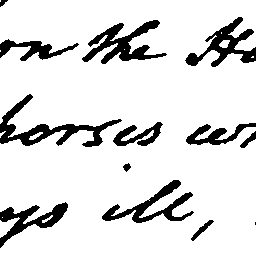 on the Ho
horses wh
ys ill,